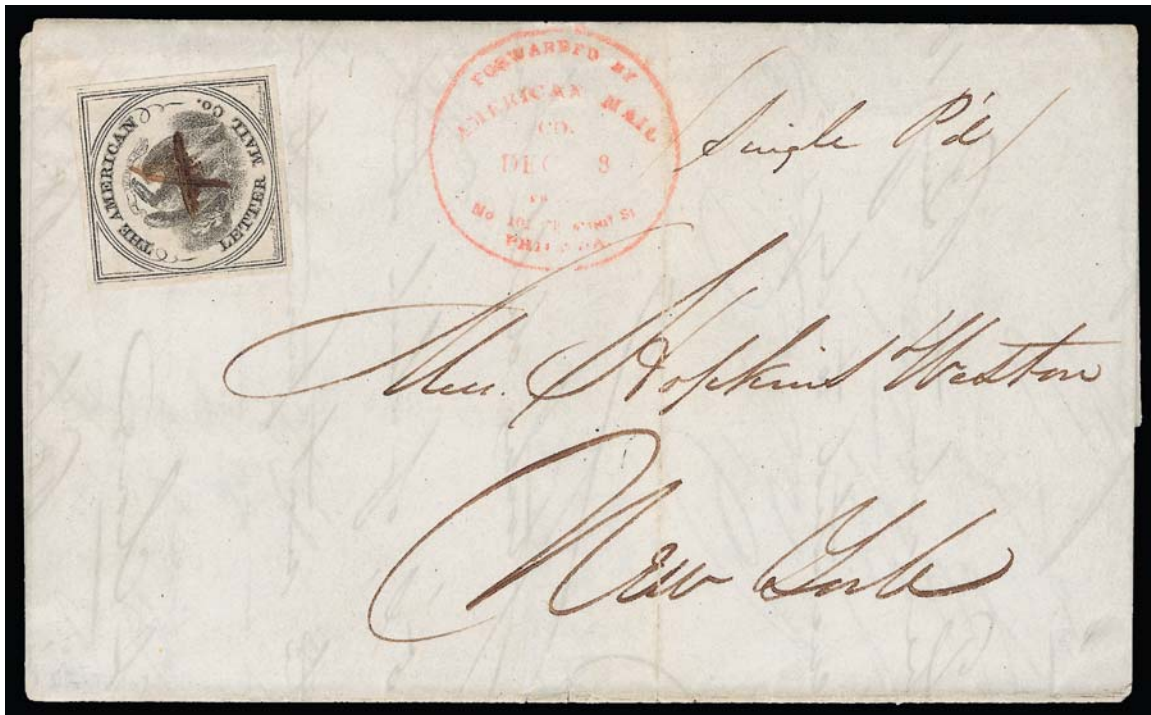 THE AMERICAN LETTER MAIL Co.
FORWAREFD BY
AMERICAN MAIL
CO.
DEC 8
No 101 St
PHILADA
Single P'd
Hopkins Weston
New York